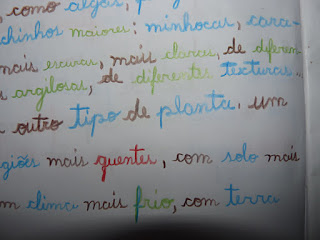 , como algas,
chinhos maiores: minhocas, cara-
mais escuras, mais claras, de diferen
argilosas, de diferentes texturas..
outro tipo de planta. um
giões mais quentes, com solo mais
m clima mais frio, com terra